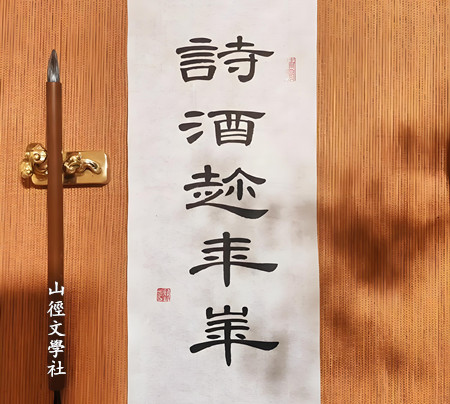 詩酒趁年華
山徑文學社